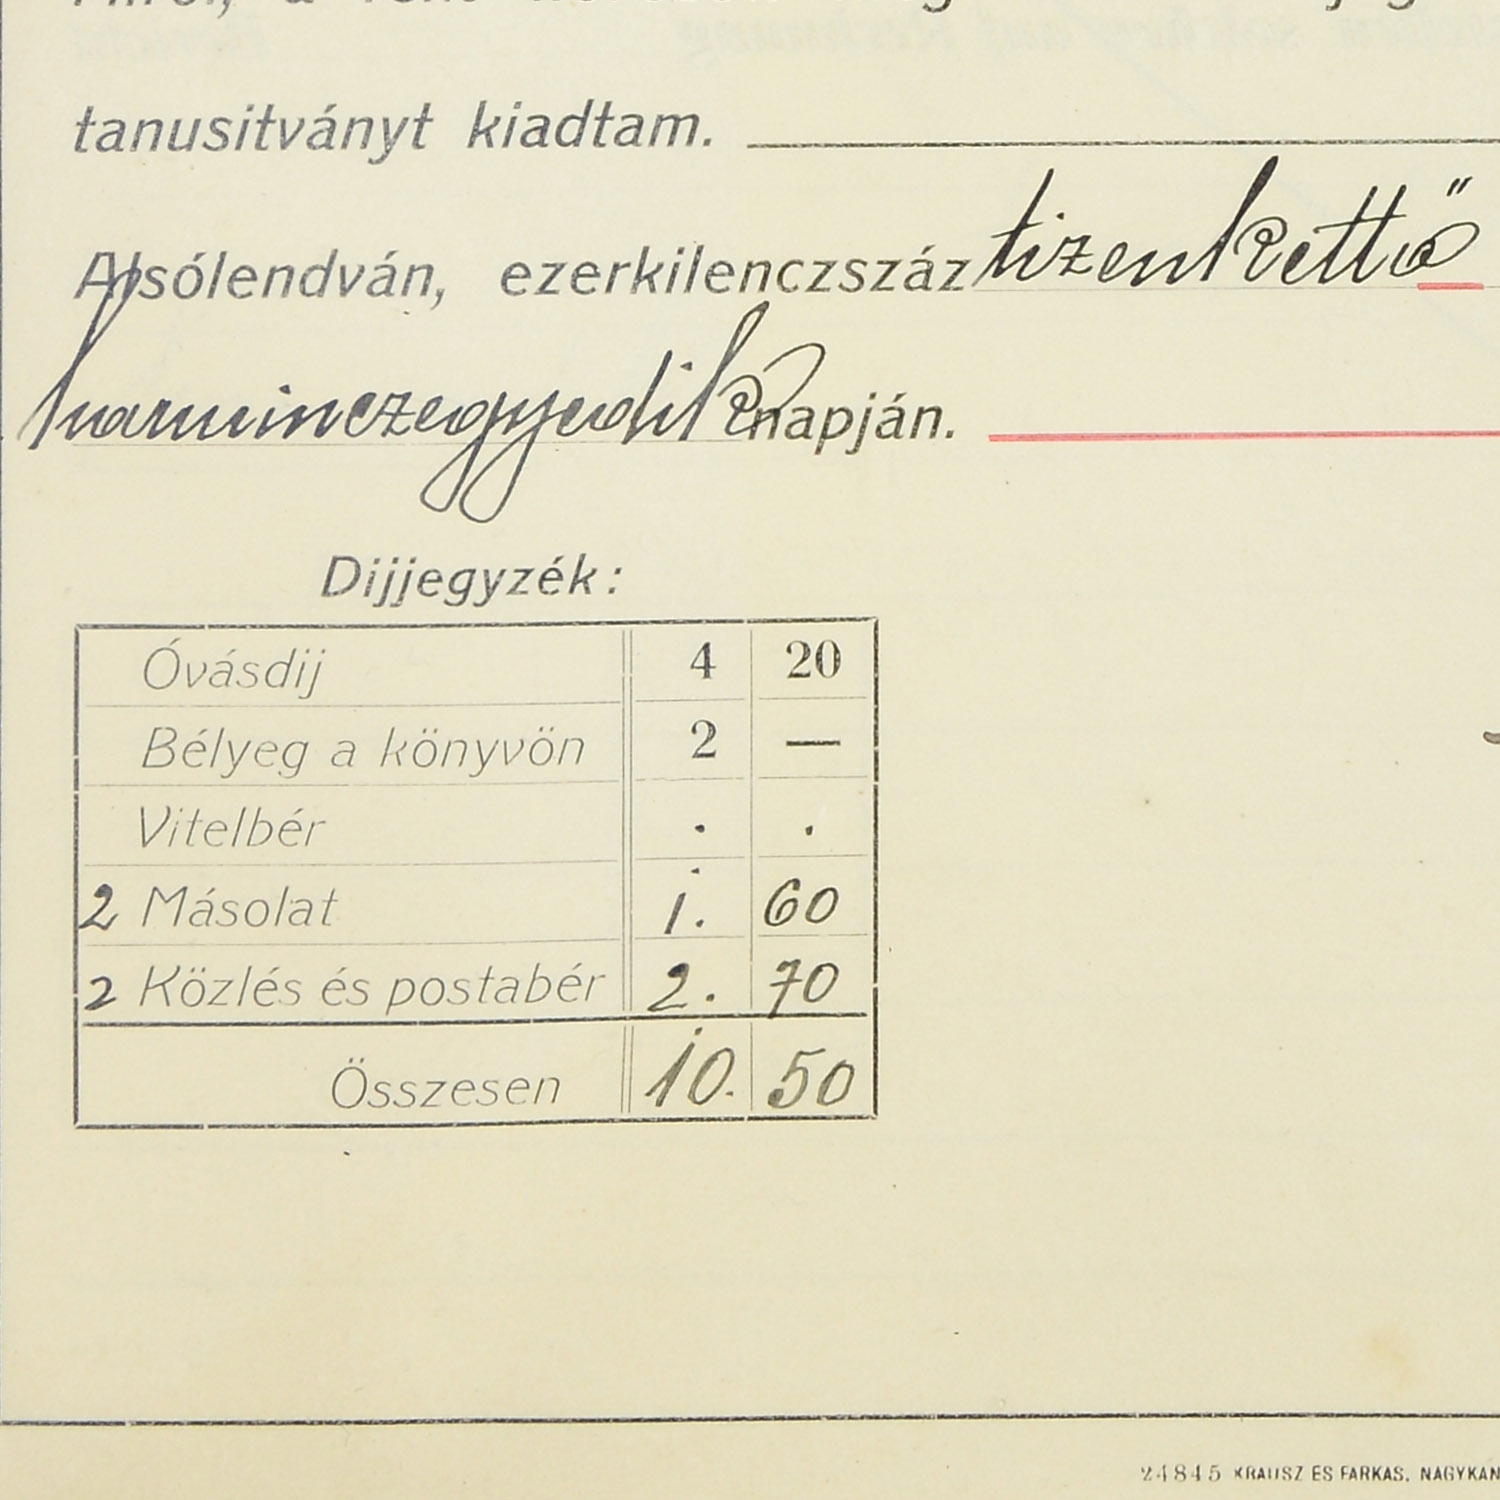 tanusitványt kiadtam.
Alsólendván, ezerkilenczszáz tizenkettő
harminczegyedik napján.
Dijjegyzék:
Óvásdij 4 20
Bélyeg a könyvön 2 —
Vitelbér . .
2 Másolat 1. 60
2 Közlés és postabér 2. 70
Összesen 10. 50
24845 KRAUSZ ES FARKAS, NAGYKAN